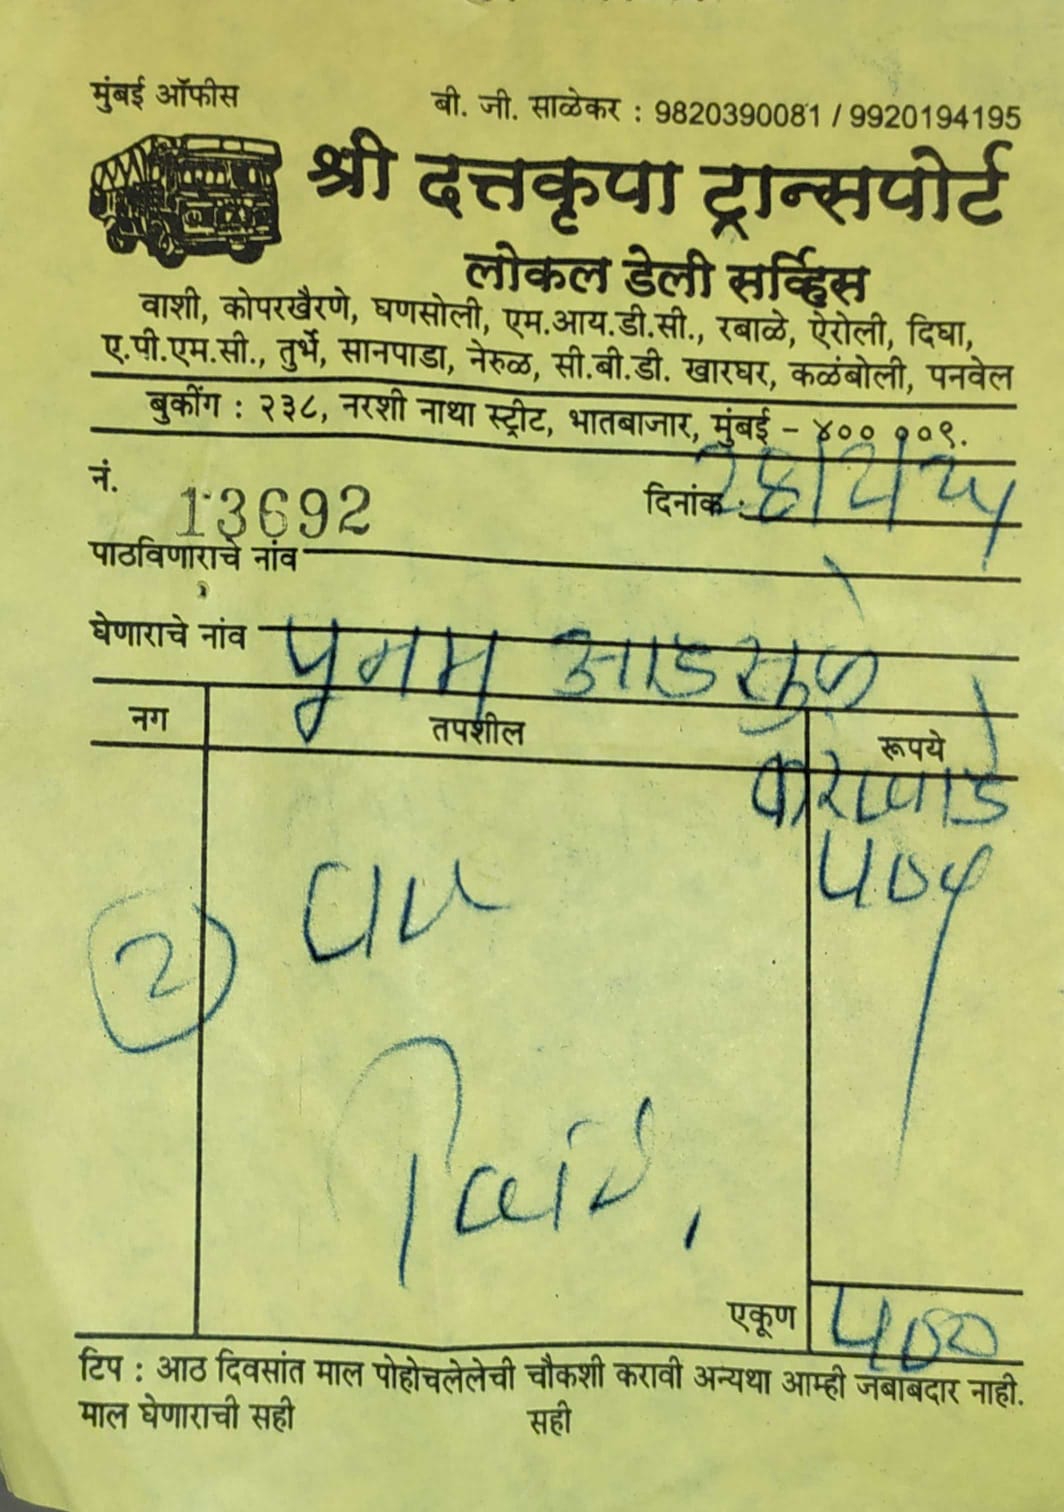 मुंबई ऑफीस
बी. जी. साळेकर : 9820390081 / 9920194195
श्री दत्तकृपा ट्रान्सपोर्ट
लोकल डेली सर्व्हिस
वाशी, कोपरखैरणे, घणसोली, एम.आय.डी.सी., रबाळे, ऐरोली, दिघा,
ए.पी.एम.सी., तुर्भे, सानपाडा, नेरुळ, सी.बी.डी. खारघर, कळंबोली, पनवेल
बुकींग : २३८, नरशी नाथा स्ट्रीट, भातबाजार, मुंबई - ४०० ००९.
नं. 13692 दिनांक :
पाठविणाराचे नांव
घेणाराचे नांव पूनम आडसुळे
नग तपशील रूपये
2
एकूण ५००
टिप : आठ दिवसांत माल पोहोचलेलेची चौकशी करावी अन्यथा आम्ही जबाबदार नाही.
माल घेणाराची सही सही